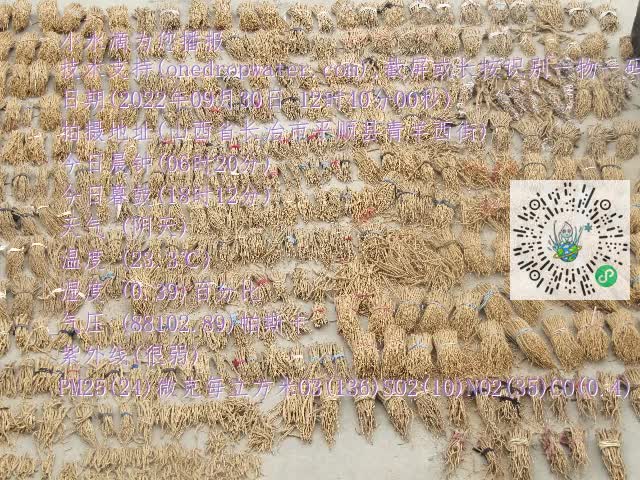 小水滴为您播报
技术支持(onedropwater.com) 截屏或长按识别一物一码
日期(2022年09月30日 12时10分00秒)
拍摄地址(山西省长治市平顺县青羊西街)
今日晨钟(06时20分)
今日暮鼓(18时12分)
天气 (阴天)
温度 (23.3℃)
湿度 (0.39)百分比
气压 (88102.89)帕斯卡
紫外线(很弱)
PM25(24)微克每立方米O3(136)SO2(10)NO2(35)CO(0.4)